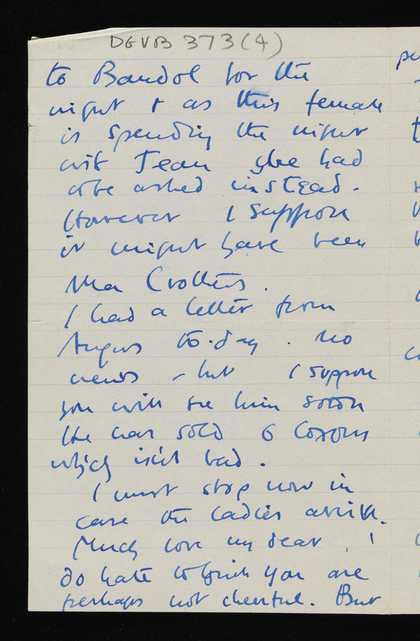 DGVB 373(4)
to Bandol for the
night & as this female
is spending the night
with Jean she had
to be asked instead.
However I suppose
it might have been
Ma Crothers.
I had a letter from
Angus to-day. No
news - but I suppose
you will see him soon
He has sold 6
which isn't bad.
I must stop now in
case the ladies arrive.
Much love my dear. I
do hate to think you are
perhaps not cheerful. But